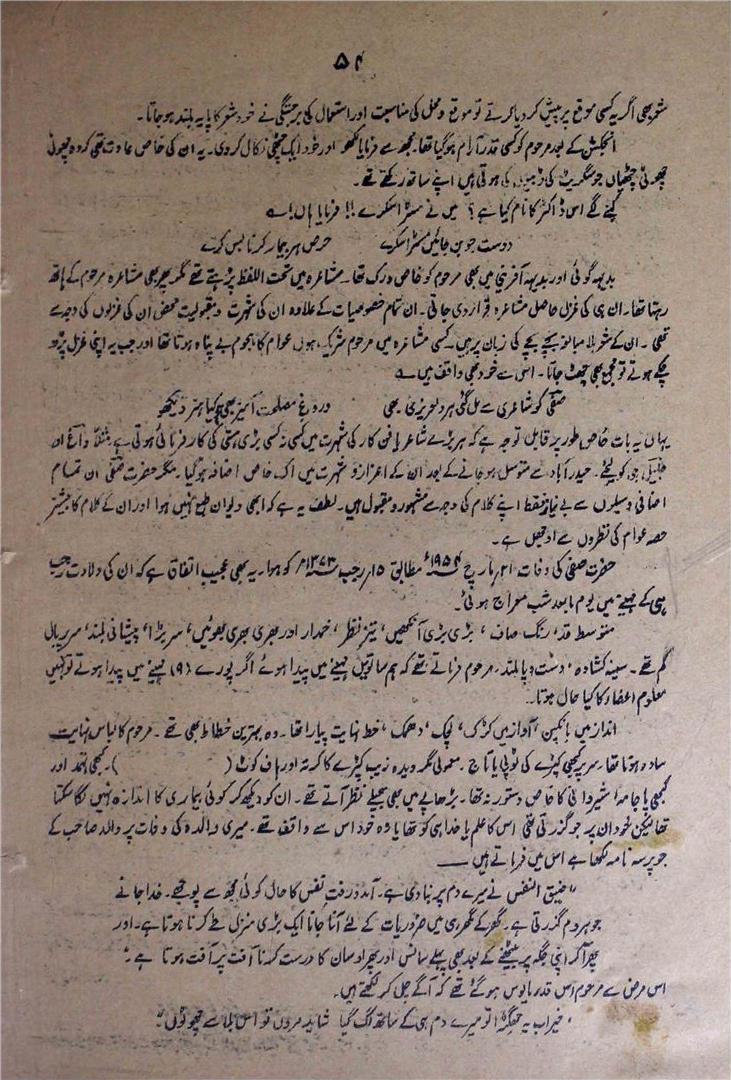 ۵۴
شعر بھی اگر یہ کسی موقع پر پیش کر دیا کرتے تو موقع و محل کی مناسبت اور استعمال کی برجستگی نے خود شعر کا پایہ بلند ہو جاتا۔
انجکشن کے بعد مرحوم کو کسی قدر آرام ہو گیا تھا۔ مجھ سے فرمایا لکھو اور خود ایک چٹھی نکال کر دی۔ یہ ان کی خاص عادت تھی کہ وہ چھوٹی
چھوٹی چٹھیاں جو سگریٹ کی ڈبیوں کی ہوتی ہیں اپنے ساتھ رکھتے تھے۔
کہنے لگے اس ڈاکٹر کا نام کیا ہے؟ میں نے مسٹر اسکرے !! فرمایا ہاں! ؎
دوست جو بن جائیں مسٹر اسکرے حرص ہر بیمار کرنا بس کرے
بدیہہ گوئی اور بدیہہ آفرینی میں بھی مرحوم کو خاص درک تھا۔ مشاعرہ میں تحت اللفظ پڑھتے تھے مگر پھر بھی مشاعرہ مرحوم کے ہاتھ
رہتا تھا۔ ان ہی کی غزل حاصل مشاعرہ قرار دی جاتی۔ ان تمام خصوصیات کے علاوہ ان کی شہرت و مقبولیت محض ان کی غزلوں کی وجہ سے
تھی۔ ان کے شعر بلا مبالغہ بچے بچے کی زبان پر ہیں۔ کسی مشاعرہ میں مرحوم شریک ہوں عوام کا ہجوم بے پناہ ہوتا تھا اور جب یہ اپنی غزل پڑھ
چکے ہوتے تو مجمع بھی چھٹ جاتا۔ اس سے خود بھی واقف ہیں ؎
صفیؔ کو شاعری سے مل گئی ہر دلعزیزی بھی دروغ مصلحت آمیز بھی کیا ہنر دیکھو
یہاں یہ بات خاص طور پر قابل توجہ ہے کہ ہر بڑے شاعر یا فن کار کی شہرت میں کسی نہ کسی بڑی ہستی کی کارفرمائی ہوتی ہے مثلاً داغؔ اور
جلیلؔ ہی کو لیجئے۔ حیدرآباد سے متوسل ہو جانے کے بعد ان کے اعزاز و شہرت میں اک خاص اضافہ ہو گیا۔ مگر حضرت صفیؔ ان تمام
اضافی وسیلوں سے بے نیاز فقط اپنے کلام کی وجہ سے مشہور و مقبول ہیں۔ لطف یہ ہے کہ ابھی دیوان طبع نہیں ہوا اور ان کے کلام کا بیشتر
حصہ عوام کی نظروں سے اوجھل ہے۔
حضرت صفیؔ کی وفات ۲۱ مارچ ۱۹۵۴ء مطابق ۱۵ رجب ۱۳۷۳ھ کو ہوا۔ یہ بھی عجیب اتفاق ہے کہ ان کی ولادت رجب
ہی کے مہینے میں یوم مابعد شب معراج ہوئی۔
متوسط قد، رنگ صاف، بڑی بڑی آنکھیں، تیز نظر، خمدار اور بھری بھری بھوئیں، سر بڑا، پیشانی بلند، سر پر بال
کم تھے۔ سینہ کشادہ، دست و پا بلند۔ مرحوم فرماتے تھے کہ ہم ساتویں مہینے میں پیدا ہوئے اگر پورے (۹) مہینے میں پیدا ہوتے تو نہیں
معلوم اعضاء کا کیا حال ہوتا۔
انداز میں بانکپن، آواز میں کڑک، لچک، دھمک، خط نہایت پیارا تھا۔ وہ بہترین خطاط بھی تھے۔ مرحوم کا لباس نہایت
سادہ ہوتا تھا۔ سر پر کبھی کپڑے کی ٹوپی یا تاج۔ معمولی مگر دیدہ زیب کپڑے کا کرتہ اور ہاف کوٹ ( )۔ کبھی تہمد اور
کبھی پاجامہ! شیروانی کا خاص دستور نہ تھا۔ بڑھاپے میں بھی سجیلے نظر آتے تھے۔ ان کو دیکھ کر کوئی بیماری کا اندازہ نہیں لگا سکتا
تھا لیکن خود ان پر جو گزرتی تھی اس کا علم یا خدا ہی کو تھا یا وہ خود اس سے واقف تھے۔ میری والدہ کی وفات پر والد صاحب کے
جو پرسہ نامہ لکھا ہے اس میں فرماتے ہیں ——
"ضیق النفس نے میرے دم پر بنا دی ہے۔ آمد و رفت نفس کا حال کوئی مجھ سے پوچھے۔ خدا جانے
جو ہر دم گزرتی ہے۔ گھر کے گھر ہی میں ضروریات کے لئے آنا جانا ایک بڑی منزل طے کرنا ہوتا ہے۔ اور
پھر آ کر اپنی جگہ پر بیٹھنے کے بعد بھی پہلے سانس اور پھر اوسان کا درست کرنا آفت پر آفت ہوتا ہے۔"
اس مرض سے مرحوم اس قدر مایوس ہو گئے تھے کہ آگے چل کر لکھتے ہیں۔
"خیر اب یہ جھگڑا تو میرے دم ہی کے ساتھ لگ گیا شاید مروں تو اس بلا سے چھوٹوں۔"